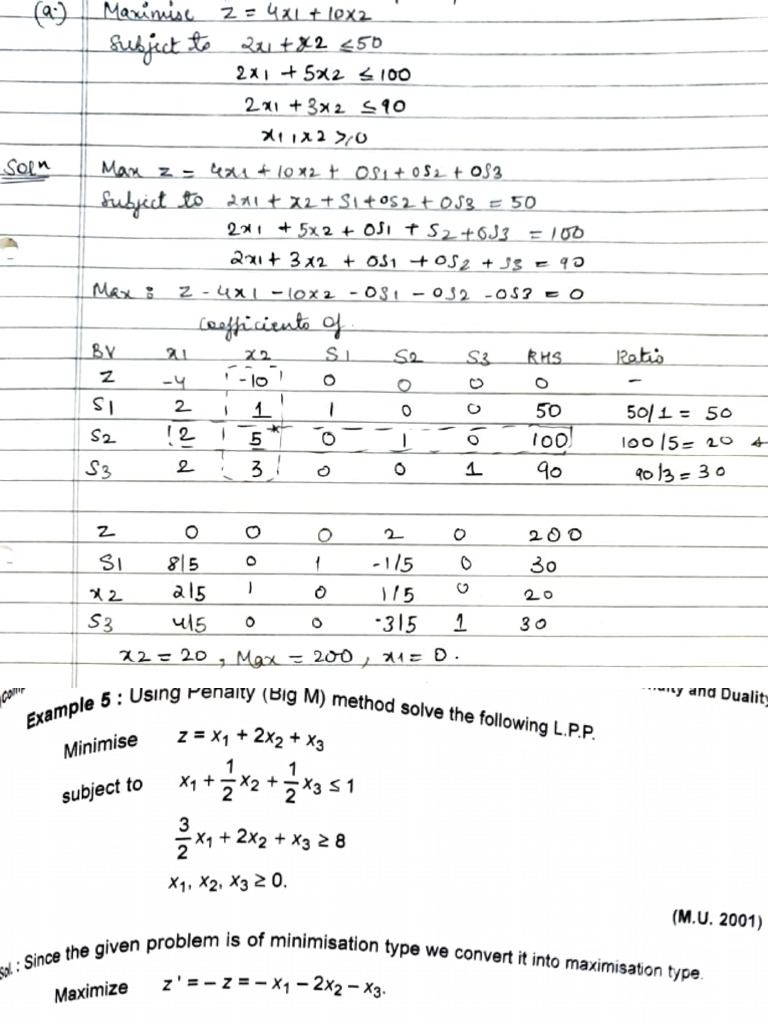 (a.) Maximise z = 4x1 + 10x2
Subject to 2x1 + x2 ≤ 50
2x1 + 5x2 ≤ 100
2x1 + 3x2 ≤ 90
x1, x2 ≥ 0
Soln Max z = 4x1 + 10x2 + 0S1 + 0S2 + 0S3
Subject to 2x1 + x2 + S1 + 0S2 + 0S3 = 50
2x1 + 5x2 + 0S1 + S2 + 0S3 = 100
2x1 + 3x2 + 0S1 + 0S2 + S3 = 90
Max : z - 4x1 - 10x2 - 0S1 - 0S2 - 0S3 = 0
Coefficients of
BV x1 x2 S1 S2 S3 RHS Ratio
Z -4 -10 0 0 0 0 -
S1 2 1 1 0 0 50 50/1 = 50
S2 2 5* 0 1 0 100 100/5 = 20 ←
S3 2 3 0 0 1 90 90/3 = 30
Z 0 0 0 2 0 200
S1 8/5 0 1 -1/5 0 30
x2 2/5 1 0 1/5 0 20
S3 4/5 0 0 -3/5 1 30
x2 = 20, Max = 200, x1 = 0.
and Duality
Example 5 : Using Penalty (Big M) method solve the following L.P.P.
Minimise z = x₁ + 2x₂ + x₃
subject to x₁ + 1/2 x₂ + 1/2 x₃ ≤ 1
3/2 x₁ + 2x₂ + x₃ ≥ 8
x₁, x₂, x₃ ≥ 0.
(M.U. 2001)
Sol. : Since the given problem is of minimisation type we convert it into maximisation type.
Maximize z' = – z = – x₁ – 2x₂ – x₃.